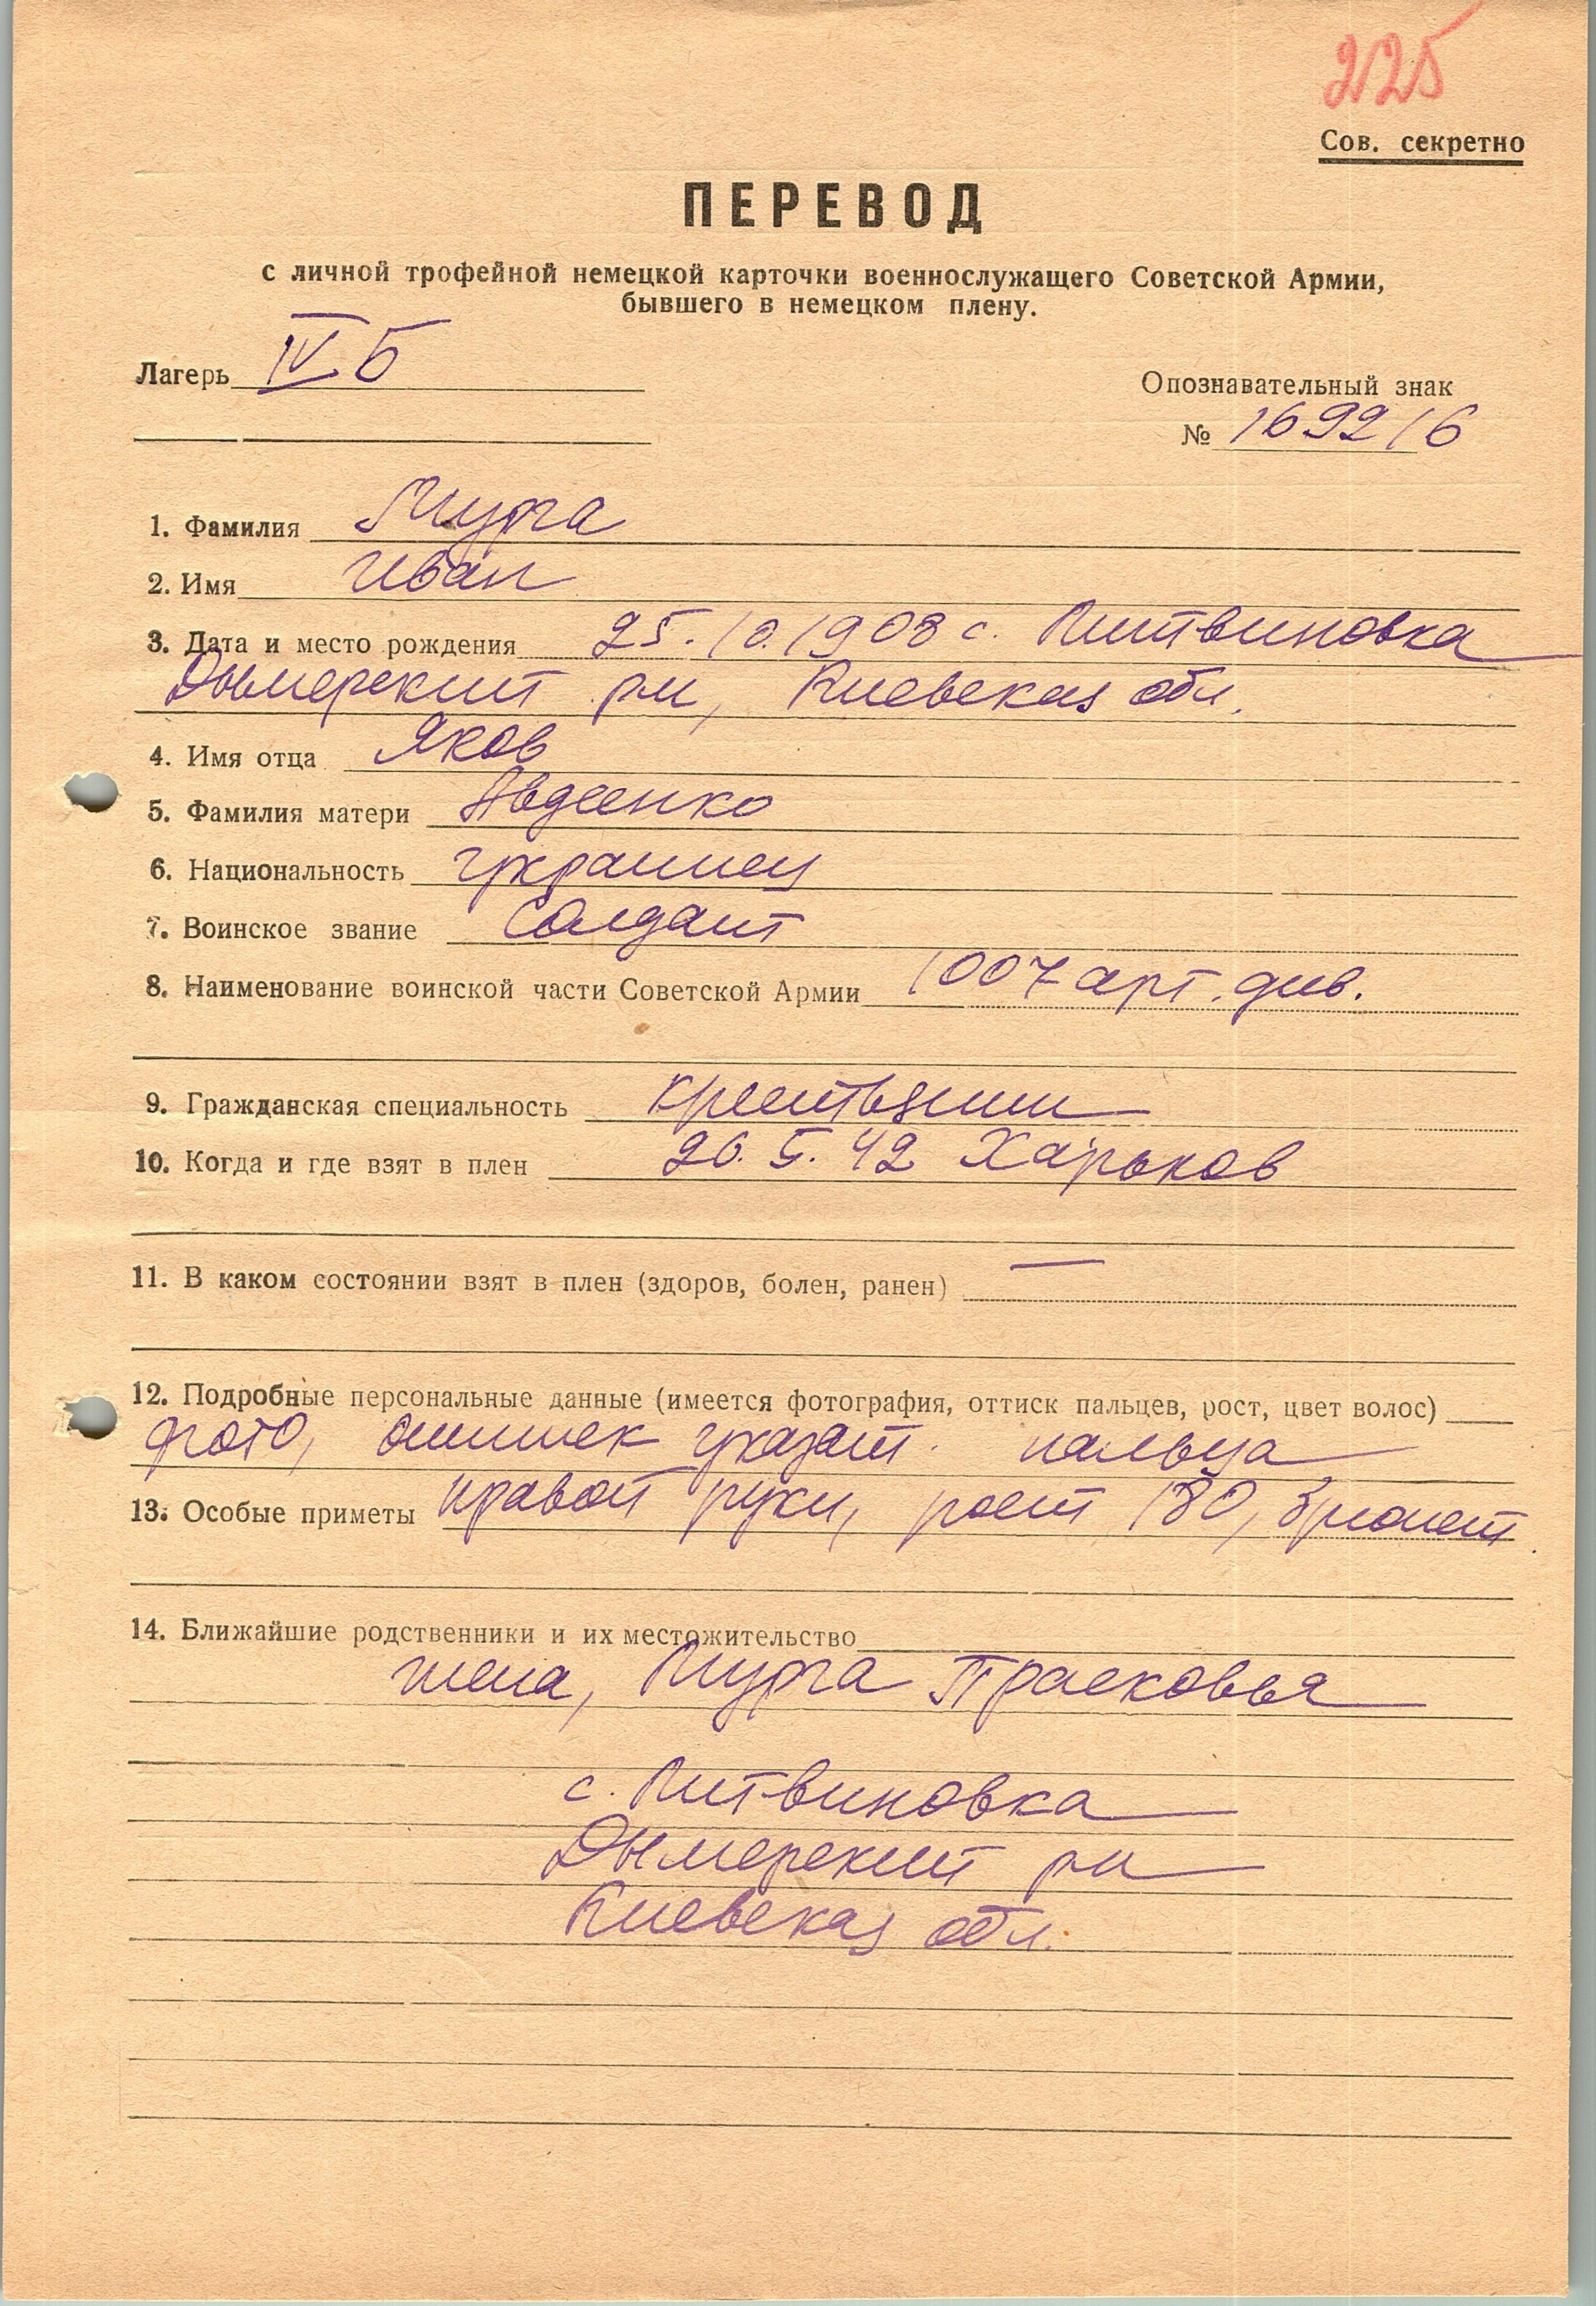 225
Сов. секретно
ПЕРЕВОД
с личной трофейной немецкой карточки военнослужащего Советской Армии,
бывшего в немецком плену.
Лагерь IV Б
Опознавательный знак
№ 169216
1. Фамилия Мурга
2. Имя Иван
3. Дата и место рождения 25.10.1908 с. Литвиновка
Дымерский рн, Киевская обл.
4. Имя отца Яков
5. Фамилия матери Авдеенко
6. Национальность украинец
7. Воинское звание Солдат
8. Наименование воинской части Советской Армии 1007 арт. див.
9. Гражданская специальность крестьянин
10. Когда и где взят в плен 26. 5. 42 Харьков
11. В каком состоянии взят в плен (здоров, болен, ранен) —
12. Подробные персональные данные (имеется фотография, оттиск пальцев, рост, цвет волос)
фото, оттиск указат. пальца
13. Особые приметы правой руки, рост 180, брюнет
14. Ближайшие родственники и их местожительство
жена, Мурга Прасковья
с. Литвиновка
Дымерский рн
Киевская обл.